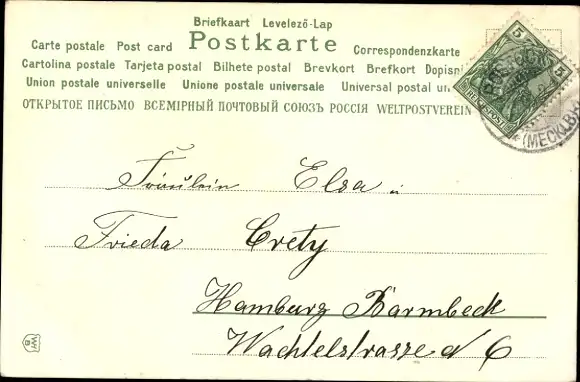 Briefkaart Levelező-Lap
Carte postale Post card Postkarte Correspondenzkarte
Cartolina postale Tarjeta postal Bilhete postal Brevkort Brefkort Dopisni
Union postale universelle Unione postale universale Universal postal un
ОТКРЫТОЕ ПИСЬМО ВСЕМІРНЫЙ ПОЧТОВЫЙ СОЮЗЪ РОССІЯ WELTPOSTVEREIN
5 5
REICHSPOST
(MECKLB)
Fräulein Elsa u
Frieda Crety
Hamburg Barmbeck
Wachtelstrasse 6